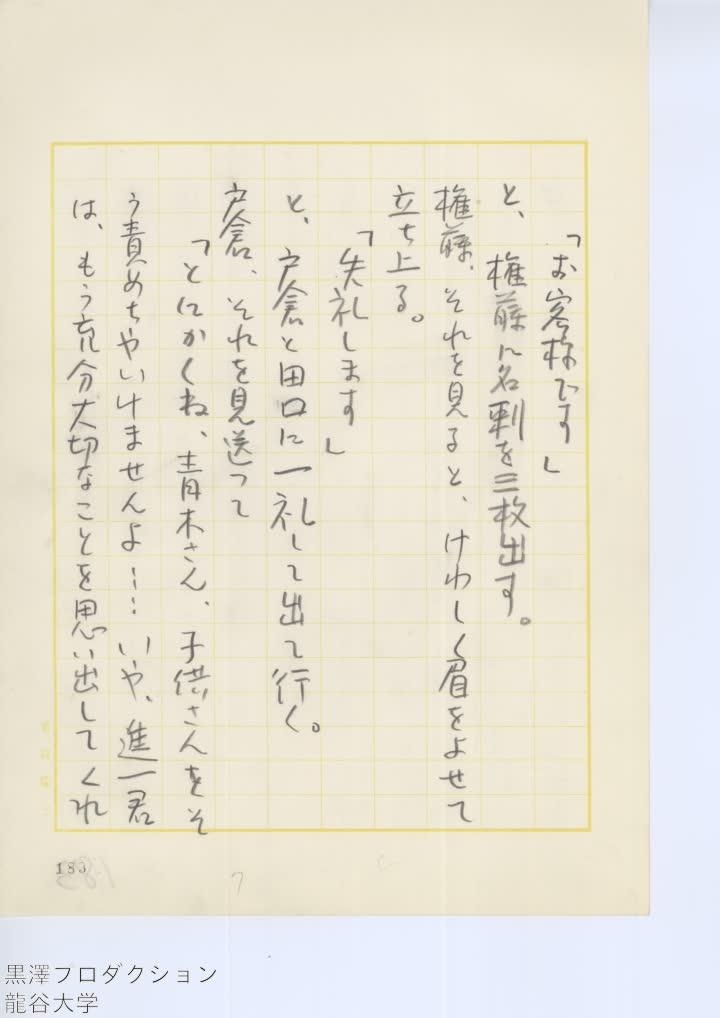 「お客様です」
と、権藤に名刺を三枚出す。
権藤、それを見ると、けわしく眉をよせて
立ち上る。
「失礼します」
と、戸倉と田口に一礼して出て行く。
戸倉、それを見送って
「とにかくね、青木さん、子供さんをそ
う責めちやいけませんよ……いや、進一君
は、もう充分大切なことを思い出してくれ
183
黒澤プロダクション
龍谷大学